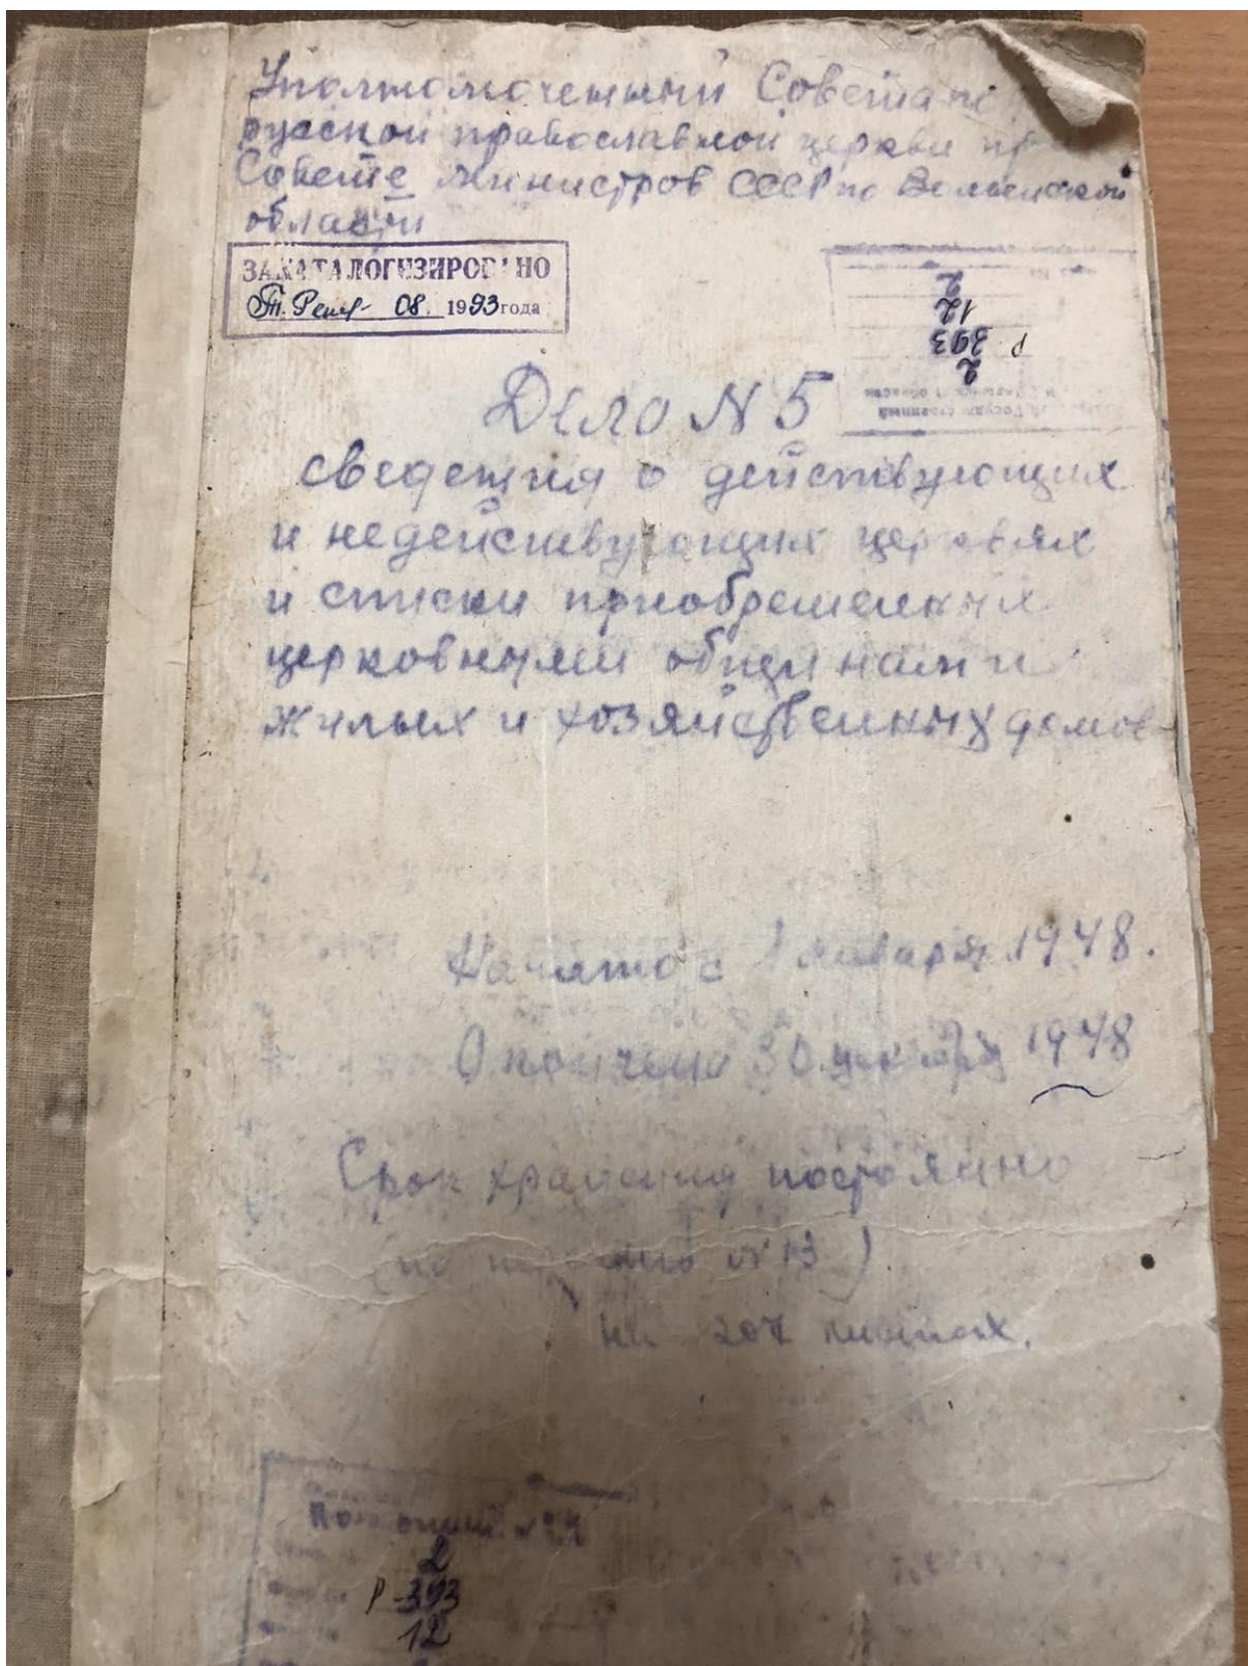 Уполномоченный Совета по
русской православной церкви пр
Совете министров СССР по Волынской
области
ЗАКАТАЛОГИЗИРОВАНО
08. 1993 года
2
12
393
Р
2
Дело N 5
сведения о действующих
и недействующих церквях
и списки приобретенных
церковными общинами
жилых и хозяйственных домов
Начато с 1 января 1948.
Окончено 30 декабря 1948
Срок хранения постоянно
по N 13)
на 207 листах.
По описи
2
Р-393
12